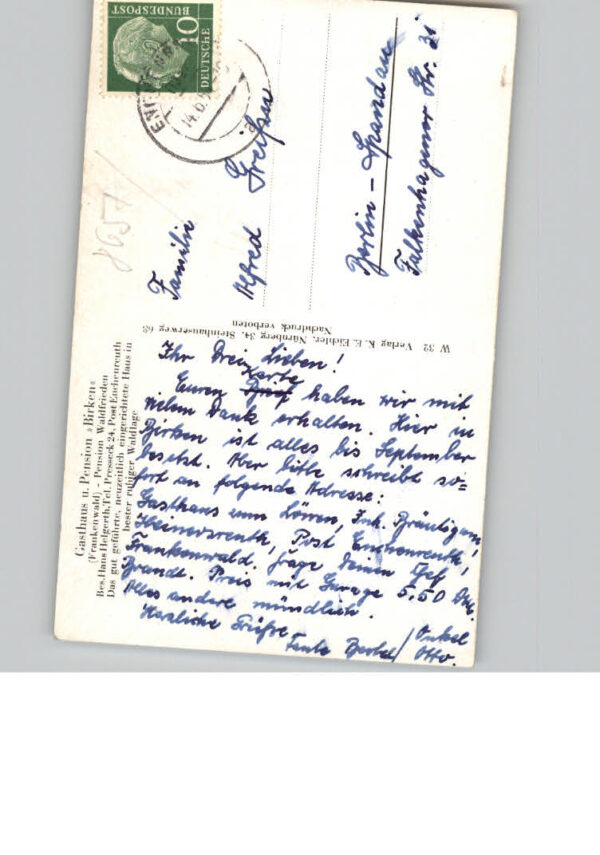 DEUTSCHE
BUNDESPOST
10
14.6.5
8657/
Familie
Alfred Greifen
Berlin-Spandau
Falkenhagener Str. 31
W 32 Verlag K. E. Eichler, Nürnberg 34, Steinhauserweg 68
Nachdruck verboten
Gasthaus u. Pension »Birken«
(Frankenwald) - Pension Waldfrieden
Bes. Hans Helgerth, Tel. Presseck 24, Post Enchenreuth
Das gut geführte, neuzeitlich eingerichtete Haus in
bester ruhiger Waldlage
Ihr Drei Lieben!
Karte
Euren Brief haben wir mit
vielem Dank erhalten. Hier in
Birken ist alles bis September
besetzt. Aber bitte schreibt so=
fort an folgende Adresse:
Gasthaus zum Löwen, Inh. Bräutigam,
Heinersreuth, Post Enchenreuth,
Frankenwald. Frage deinen Chef
Brandt. Preis mit Garage 5,50 DM.
Alles andere mündlich.
Herzliche Grüße
Tante Bertel / Onkel
Otto.